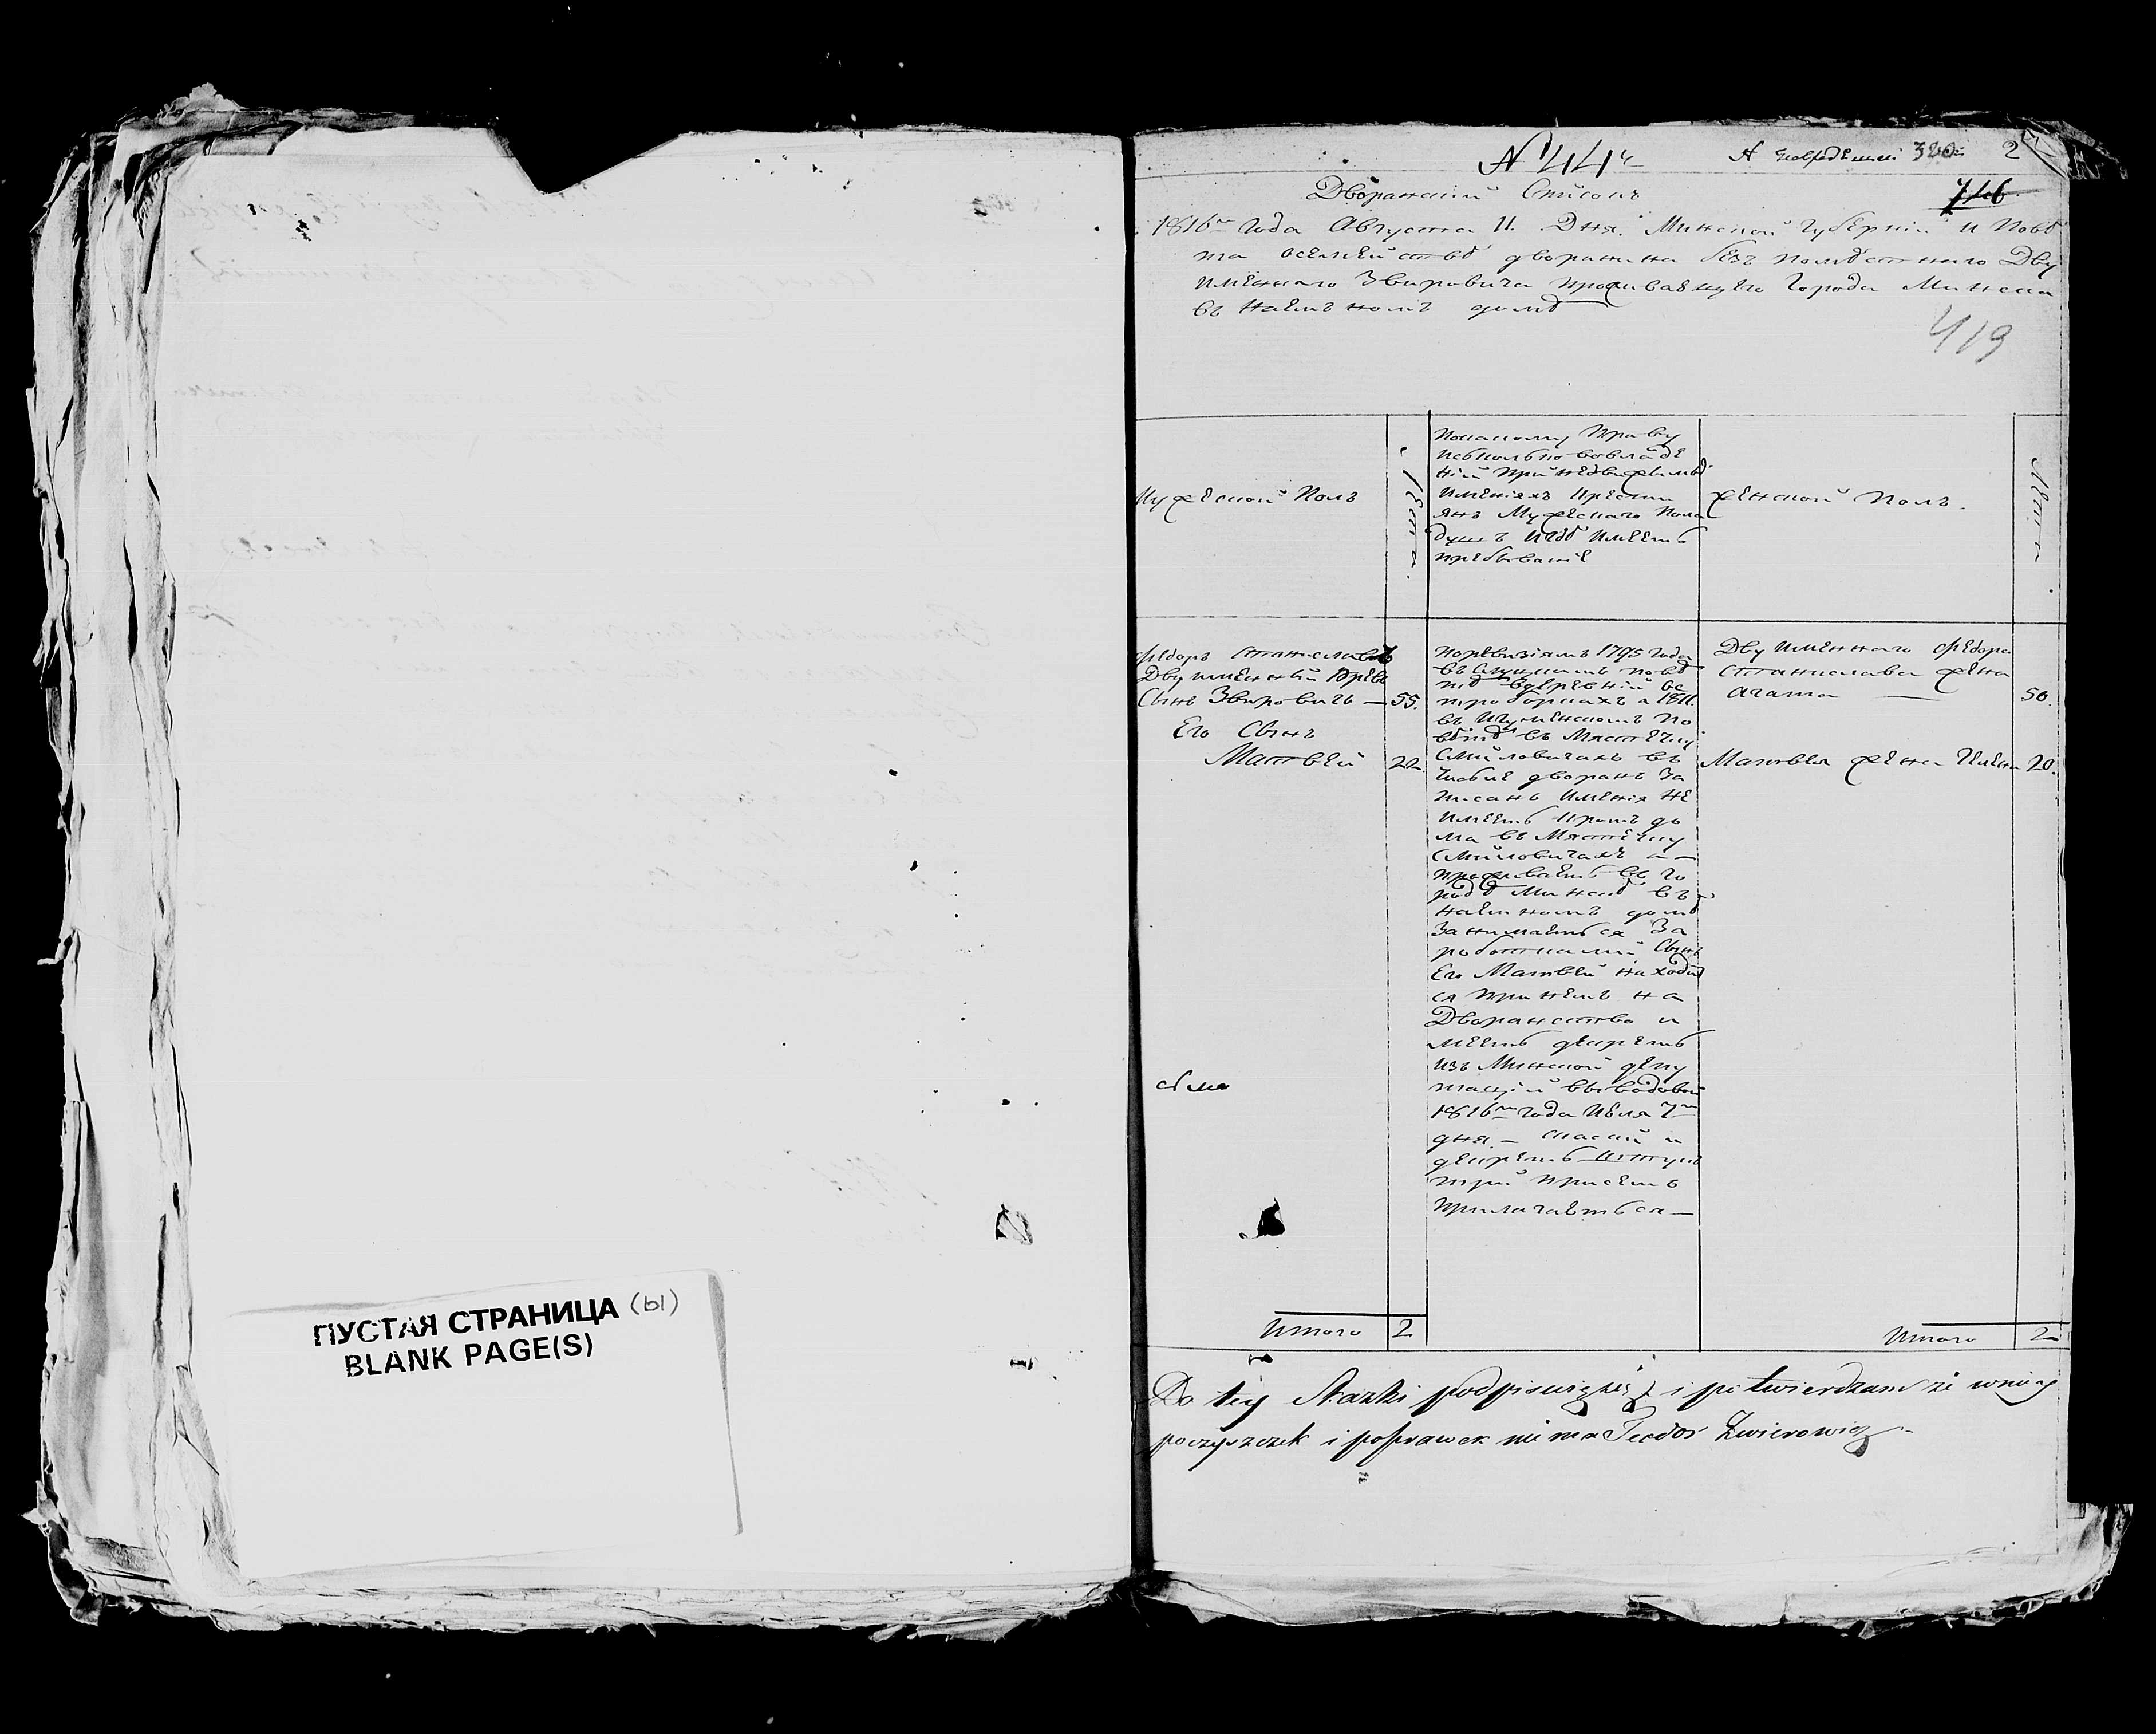 ПУСТАЯ СТРАНИЦА (ы)
BLANK PAGE(S)
N 414
А 380 2
Дворянский Список
746
1816го Года Августа 11. Дня. Минской Губернии и Повѣ
та осемействѣ дворянина безъ помѣстнаго Дву
имЕннаго Звировича проживающего Города Минска
въ наЕмъномъ домѣ
419
Мужеской Полъ
Лѣта.
Покакому Праву
Нiи при недвижимыхъ
ИмЕнiяхъ Крестьи
янъ Мужескаго Пола
душъ и гдѣ ИмѣЕтъ
прЕбыванiЕ
ЖЕнской Полъ.
Лѣта
ФЕдоръ Станиславъ
ДвуимЕнный
Сынъ Звировичъ — 55.
Его Сынъ
Матвѣй 22
порЕвизiямъ 1795 года
въ Слуцкомъ повѣ
тѣ вдЕрЕвнiй ос
троборкахъ а 1811.
въ ИгумЕнскомъ По
вѣтѣ въ МястЕчку
Смиловичахъ въ
числѣ дворянъ За
писанъ ИмЕнiя НЕ
ИмѣЕтъ Кромъ до
ма въ МястЕчку
Смиловичахъ а —
проживаЕтъ въ го
родѣ Минскѣ въ
наЕмномъ домѣ
ЗанимаЕтся За
роботками Сынъ
Его Матвѣй находит
ся при нЕмъ на
Дворянство и
мѣЕтъ дЕкрЕтъ
изъ Минской дЕпу
тацiи выводовой
1816го года Июля 7го
дня — и
дЕкрЕтъ
три
прилагаЕтся —
ДвуимЕннаго ФЕдора
Станислава жЕна
Агата — 50.
Матвѣя жЕна 20.
Итого 2
Итого 2
Do tey Skazki podpisuię się i potwierdzam że wniey
poczyszczek i poprawek nie ma Teodor Zwierowicz